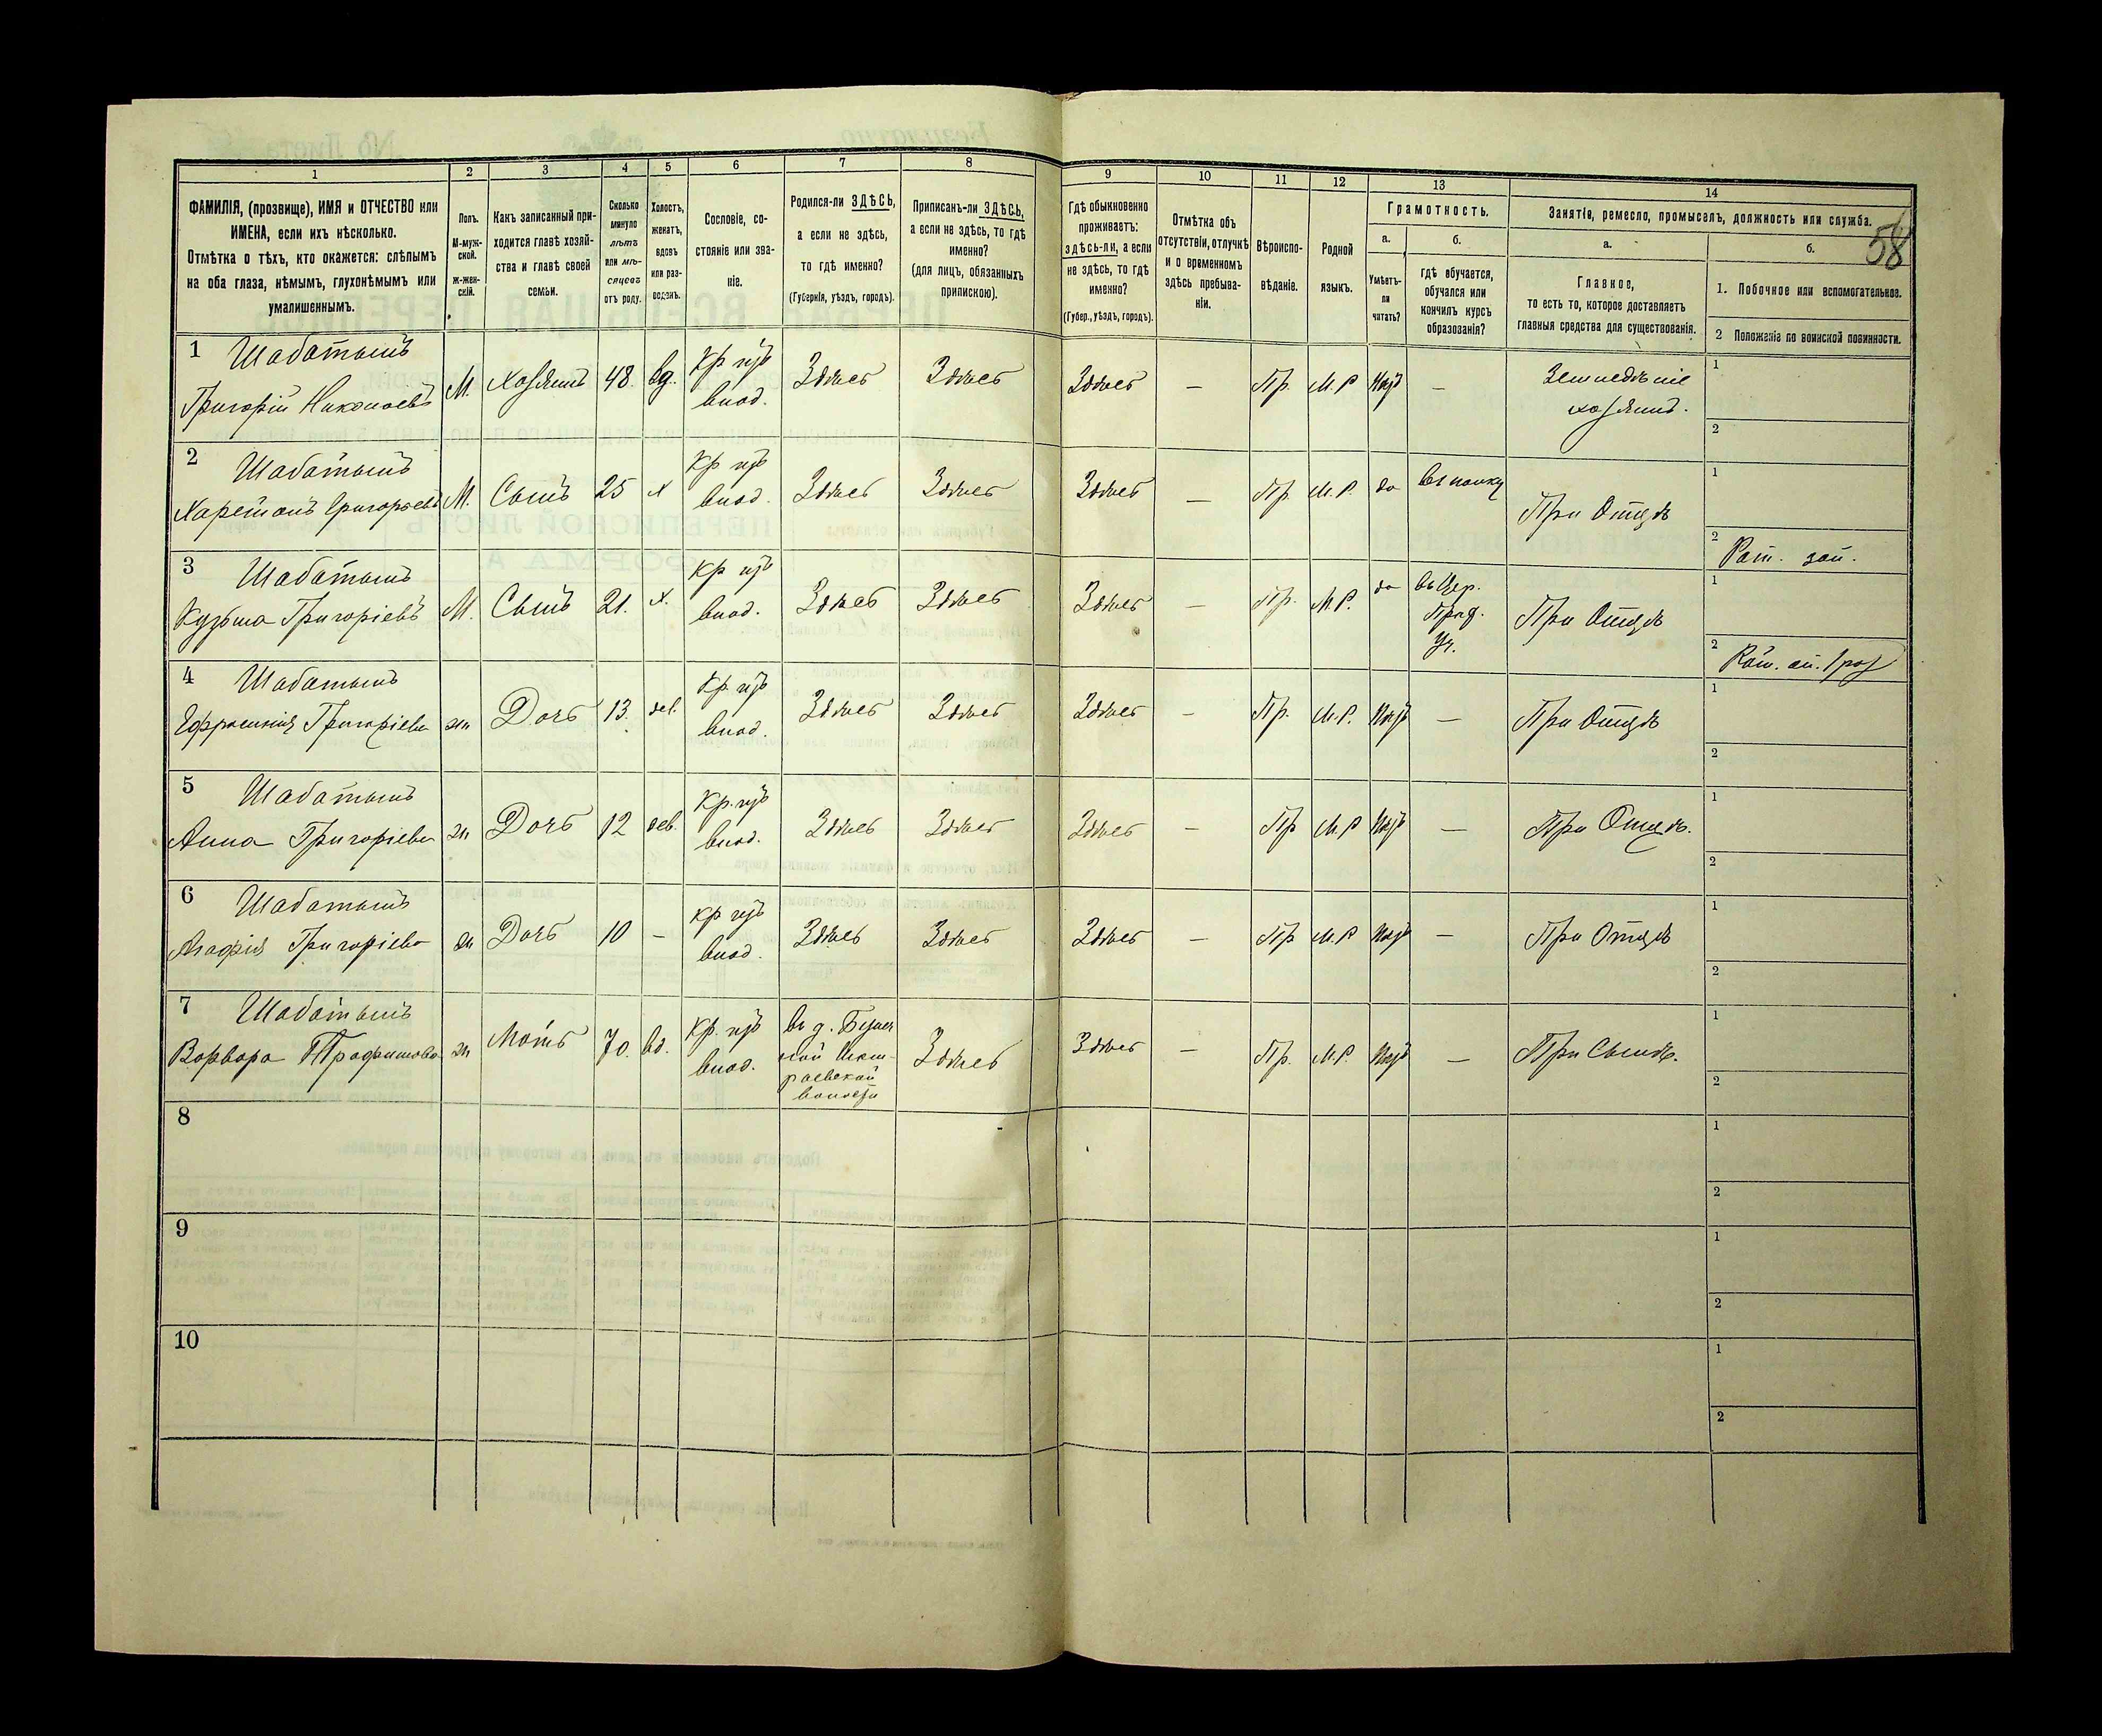 58
1 2 3 4 5 6 7 8 9 10 11 12 13 14
ФАМИЛІЯ, (прозвище), ИМЯ и ОТЧЕСТВО или
ИМЕНА, если ихъ нѣсколько.
Отмѣтка о тѣхъ, кто окажется: слѣпымъ
на оба глаза, нѣмымъ, глухонѣмымъ или
умалишеннымъ.
Полъ.
М-муж-
ской.
Ж-жен-
скій.
Какъ записанный при-
ходится главѣ хозяй-
ства и главѣ своей
семьи.
Сколько
минуло
лѣтъ
или мѣ-
сяцевъ
отъ роду.
Холостъ,
женатъ,
вдовъ
или раз-
веденъ.
Сословіе, со-
стояніе или зва-
ніе.
Родился-ли ЗДѢСЬ,
а если не здѣсь,
то гдѣ именно?
(Губернія, уѣздъ, городъ).
Приписанъ-ли ЗДѢСЬ,
а если не здѣсь, то гдѣ
именно?
(для лицъ, обязанныхъ
припискою).
Гдѣ обыкновенно
проживаетъ:
здѣсь-ли, а если
не здѣсь, то гдѣ
именно?
(Губер., уѣздъ, городъ).
Отмѣтка объ
отсутствіи, отлучкѣ
и о временномъ
здѣсь пребыва-
ніи.
Вѣроиспо-
вѣданіе.
Родной
языкъ.
Грамотность.
а.
Умѣетъ-
ли
читать?
б.
Гдѣ обучается,
обучался или
кончилъ курсъ
образованія?
Занятіе, ремесло, промыселъ, должность или служба.
а.
Главное,
то есть то, которое доставляетъ
главныя средства для существованія.
б.
1. Побочное или вспомогательное.
2 Положеніе по воинской повинности.
1 Шабатынъ
Григорій Николаевъ
М. Хозяинъ 48. вд. Кр изъ
влад. Здѣсь Здѣсь Здѣсь — Пр. М.Р. —
Земледѣліе
хозяинъ.
1
2
2 Шабатынъ
Харетонъ Григорьевъ
М. Сынъ 25 х Кр изъ
влад. Здѣсь Здѣсь Здѣсь — Пр. М.Р. да
При Отцѣ
1
2
3 Шабатынъ
Кузьма Григоріевъ
М. Сынъ 21. х. Кр изъ
влад. Здѣсь Здѣсь Здѣсь — Пр. М.Р. да въ Цер.
Уч.
При Отцѣ
1
2
4 Шабатынъ
Григоріева
Дочь 13. дев. Кр. изъ
влад. Здѣсь Здѣсь Здѣсь — Пр. М.Р. —
При Отцѣ
1
2
5 Шабатынъ
Анна Григоріева
Дочь 12 дев. Кр. изъ
влад. Здѣсь Здѣсь Здѣсь — Пр М.Р —
При Отцѣ.
1
2
6 Шабатынъ
Агафія Григоріева
Дочь 10 — кр изъ
влад. Здѣсь Здѣсь Здѣсь — Пр М.Р —
При Отцѣ
1
2
7 Шабатынъ
Варвара Трафимова
Мать 70. вд. Кр. изъ
влад. въ д.
волости
Здѣсь Здѣсь — Пр. М.Р. —
При Сынѣ.
1
2
8
1
2
9
1
2
10
1
2